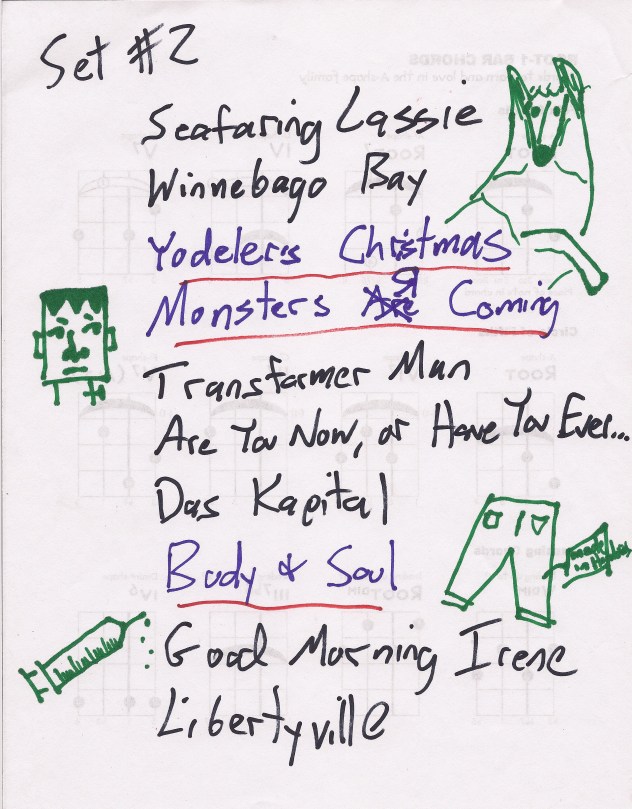 Set #2
Seafaring Lassie
Winnebago Bay
Yodeler's Christmas
Monsters Coming
Transformer Man
Are You Now, or Have You Ever...
Das Kapital
Body & Soul
made in
Good Morning Irene
Libertyville